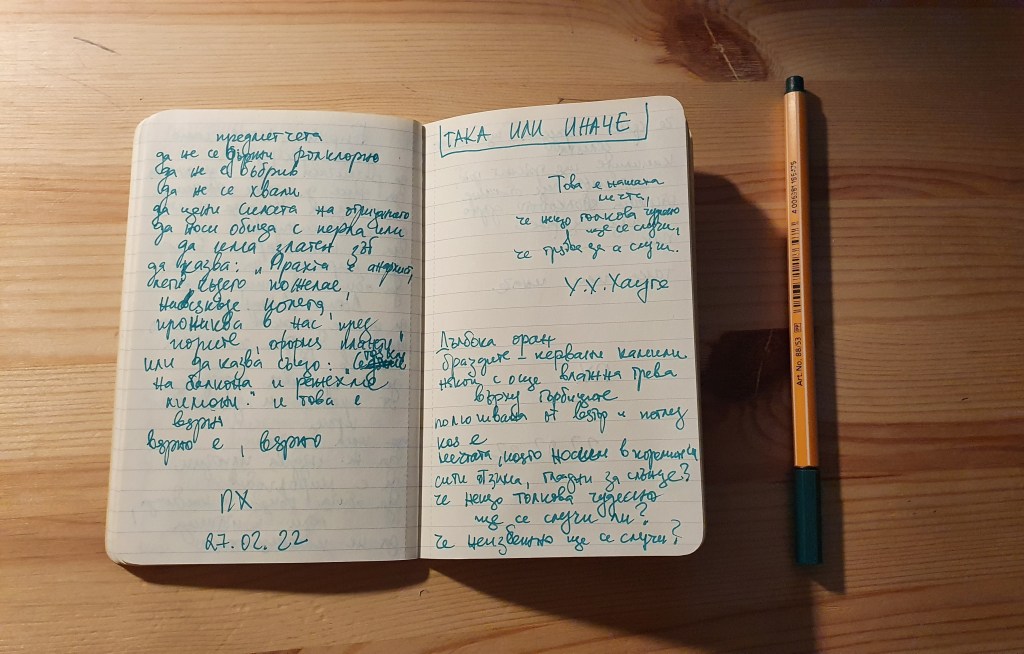 предмет чета
да не се бърни фолклорно
да не е бъбрив
да не се хвали
да цени силата на
да носи обица с перла или
да има златен зъб
да казва: „Прахта е анархист,
лети където пожелае,
полета,
прониква в нас през
порите,
или да казва също: „
на балкона и режехме
лимони." и това е
вярно
вярно е, вярно
ПХ
27.02.22
ТАКА ИЛИ ИНАЧЕ
Това е нашата
мечта,
че нещо толкова чудно
ще се случи,
че трябва да се случи.
У.Х. Хауге
Дълбока оран
браздите – кервани камили
някой с още влажна трева
върху гърбиците
полюшвана от вятър и поглед
коя е
мечтата, която носим в
сити езика, гладни за слънце?
че нещо толкова чудесно
ще се случи ли?
че неизбежно ще се случи?
Art. No. 88/53